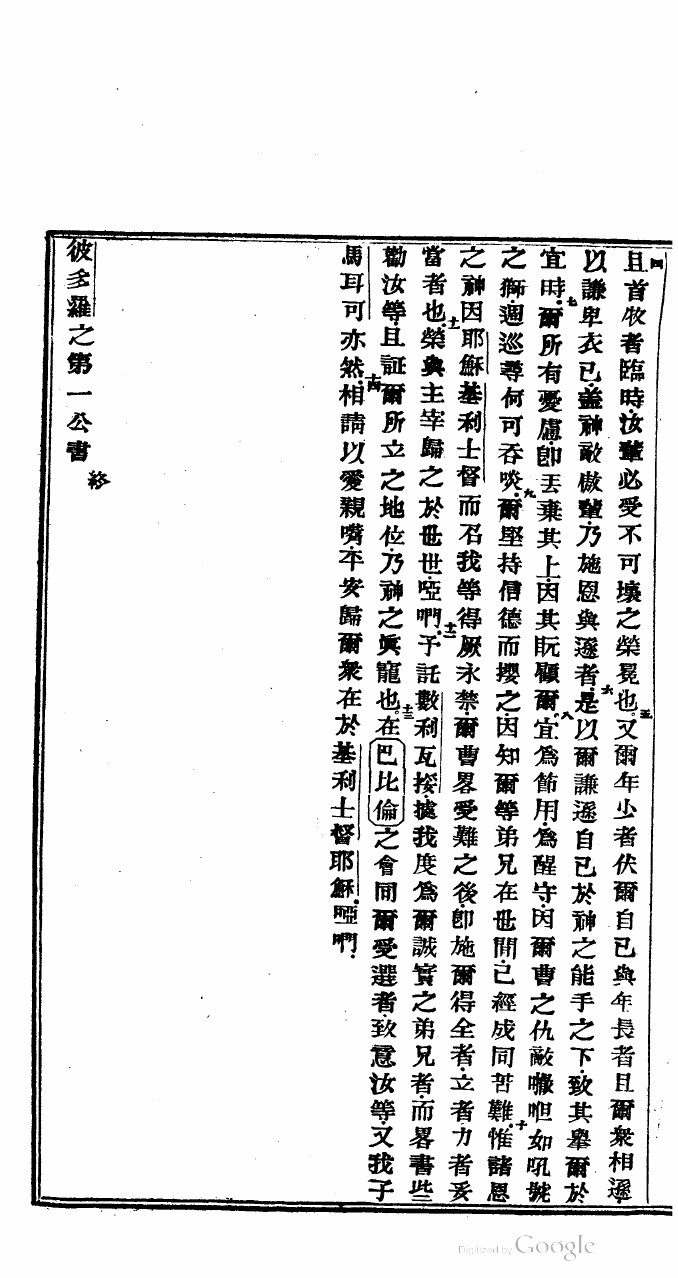 四且首牧者臨時汝輩必受不可壞之榮冕也五又爾年少者伏爾自已與年長者且爾衆相遜
以謙卑衣已蓋神敵傲輩乃施恩與遜者六是以爾謙遜自已於神之能手之下致其舉爾於
宜時七爾所有憂慮卽丟棄其上因其眷顧爾八宜爲節用爲醒守因爾曹之仇敵嚈呾如吼號
之獅週巡尋何可吞啖九爾堅持信德而攖之因知爾等弟兄在世間已經成同苦難十惟諸恩
之神因耶穌基利士督而召我等得厥永榮爾曹畧受難之後卽施爾得全者立者力者妥
當者也十一榮與主宰歸之於世世啞㗲十二予託數利瓦挼據我度爲爾誠實之弟兄者而畧書些
勸汝等且証爾所立之地位乃神之眞寵也十三在巴比倫之會同爾受選者致意汝等又我子
馬耳可亦然十四相請以愛親嘴平安歸爾衆在於基利士督耶穌啞㗲
彼多羅之第一公書 終
Digitized by Google